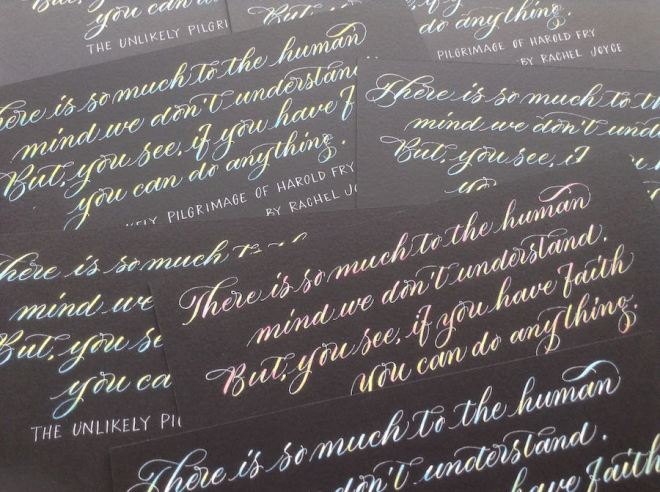 you can do any
THE UNLIKELY PILGRI
But, you see,
you can do anything.
do anything.
PILGRIMAGE OF HAROLD FRY
BY RACHEL JOYCE
There is so much to the human
mind we don't understand
But, you see, if you have f
you can do anything.
KELY PILGRIMAGE OF HAROLD FRY
BY RACHEL JO
There is so much to t
mind we don't unde
But, you see, if
yo
here is so much to
mind we
But, you se
you ca
THE UNLIKELY PIL
There is so much to the human
mind we don't understand.
But, you see, if you have faith
you can do anything.
There is so much to the human
don't understand.
if you have faith